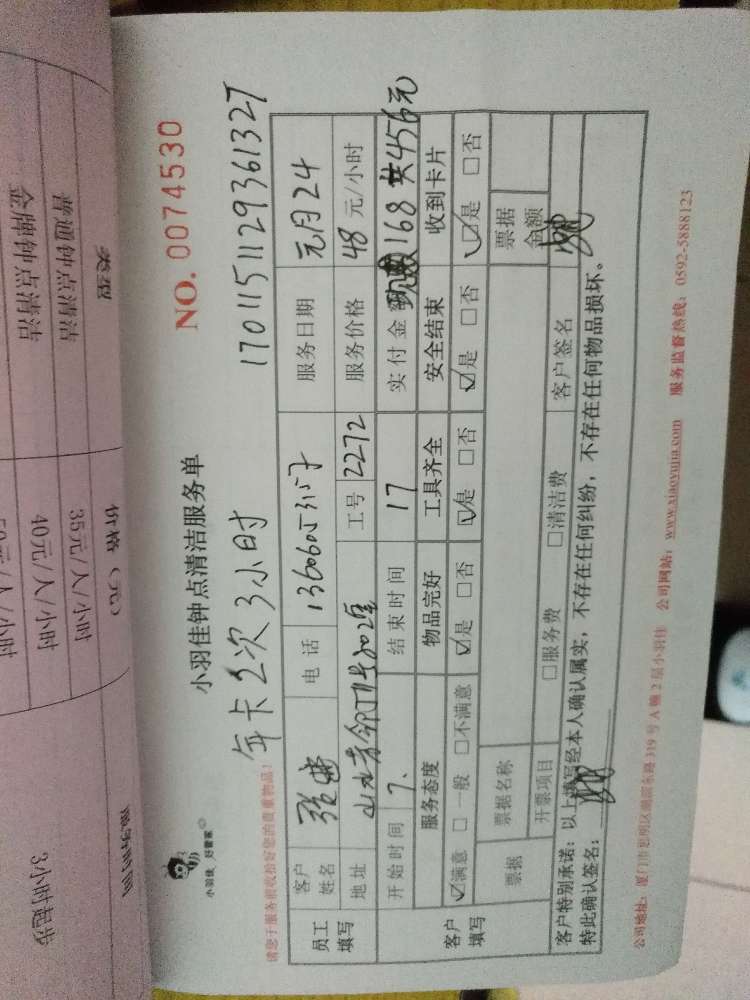 小羽佳 好管家
小羽佳钟点清洁服务单
NO. 0074530
请您于服务前收拾好您的贵重物品!
年卡2次3小时
17011511129361327
员工填写
客户姓名
电话
服务日期 元月24
地址
工号 2272
服务价格 48 元/小时
开始时间
结束时间 17
实付金 168 共456元
客户填写
服务态度
物品完好
工具齐全
安全结束
收到卡片
☑满意 □一般 □不满意
☑是 □否
☑是 □否
☑是 □否
☑是 □否
票据
票据名称
票据金额
开票项目
□服务费
□清洁费
客户签名
客户特别承诺:以上填写经本人确认属实,不存在任何纠纷,不存在任何物品损坏。
特此确认签名:
公司地址:厦门市思明区湖滨东路319号A幢2层小羽佳 公司网站:www.xiaoyujia.com 服务监督热线:0592-5888123
类型
价格(元)
服务时间
普通钟点清洁
35元/人/小时
金牌钟点清洁
40元/人/小时
50元/人/小时
3小时起步